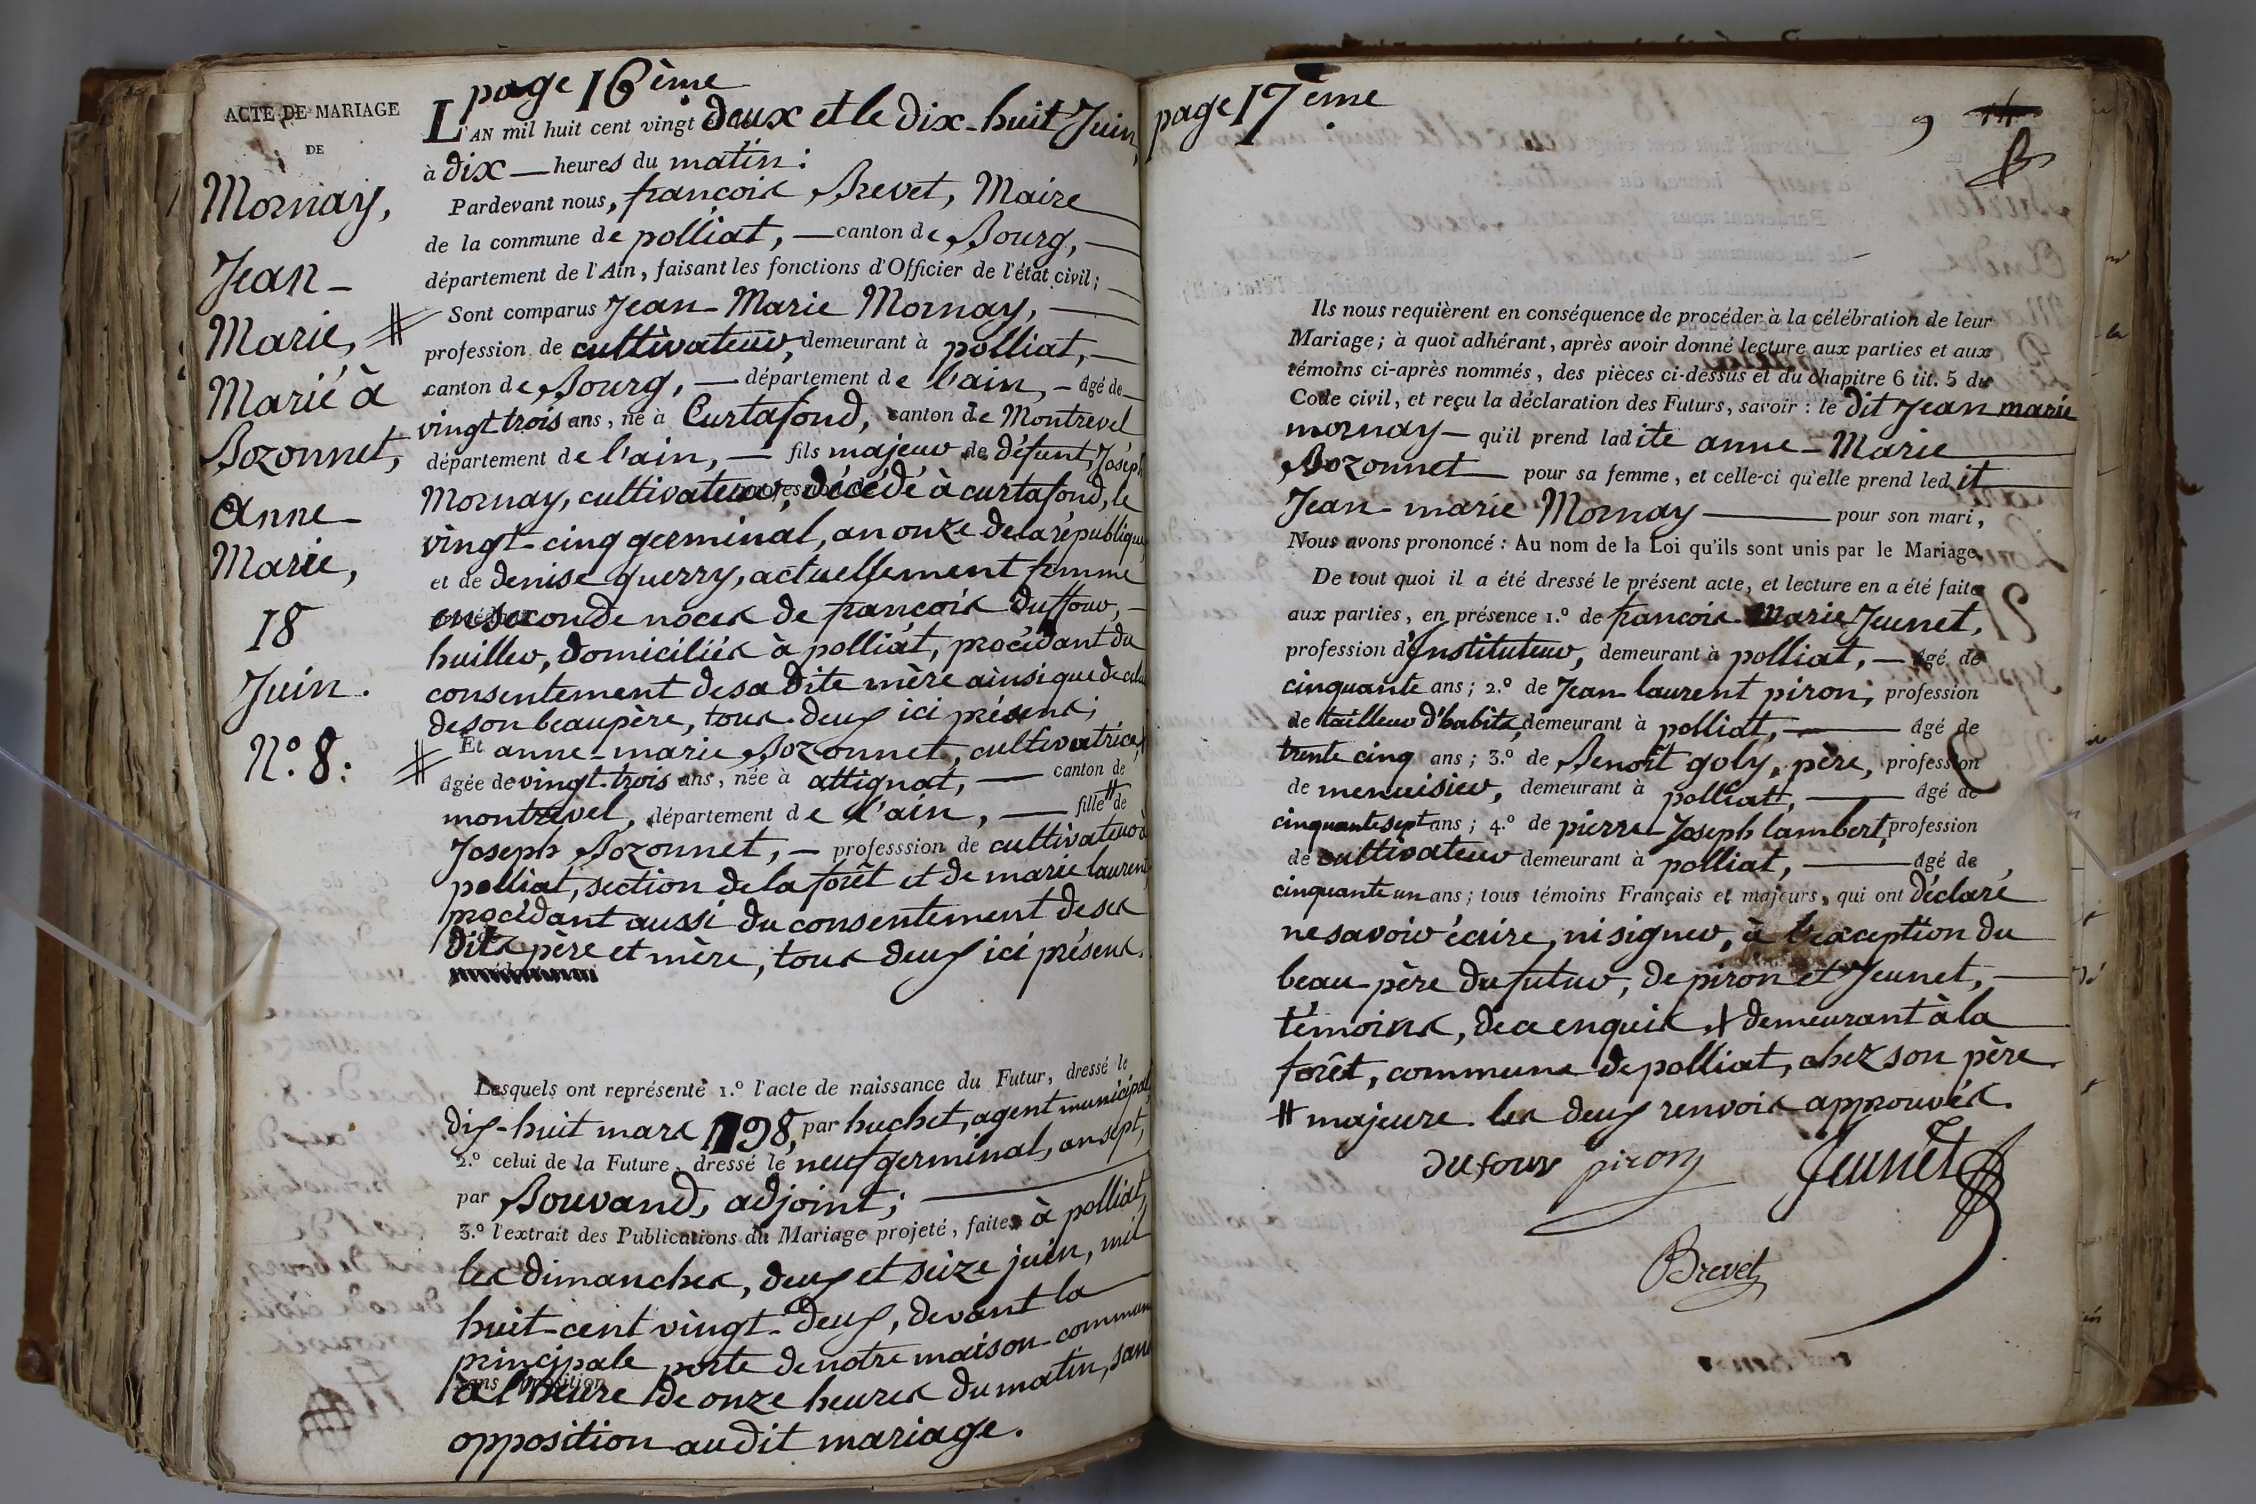 page 16ème
ACTE DE MARIAGE
DE
Mornay,
Jean-
Marie, #
Marié à
Bozonnet,
Anne-
Marie,
18
Juin.
N.º 8:
L'AN mil huit cent vingt deux et le dix-huit Juin,
à dix — heures du matin:
Pardevant nous, françois Brevet, Maire
de la commune de polliat, — canton de Bourg, —
département de l'Ain, faisant les fonctions d'Officier de l'état civil; —
Sont comparus Jean-Marie Mornay, —
profession de cultivateur, demeurant à polliat, —
canton de Bourg, — département de l'ain, — âgé de
vingt trois ans, né à Curtafond, canton de Montrevel
département de l'ain, — fils majeur de défunt Joseph
Mornay, cultivateur, décédé à curtafond, le
vingt-cinq germinal, an onze de la république,
et de denise guerry, actuellement femme
en seconde noces de françois duffour, —
huillier, domiciliés à polliat, procédant du
consentement de sa dite mère ainsi que de celui
de son beau père, tous deux ici présens;
# Et anne-marie Bozonnet, cultivatrice, ✗
âgée de vingt-trois ans, née à attignat, — canton de
montrevel, département de l'ain, — fille # de
Joseph Bozonnet, — professsion de cultivateur à
polliat, section de la forêt et de marie laurent,
procédant aussi du consentement de ses
dits père et mère, tous deux ici présens.
Lesquels ont représenté 1.º l'acte de naissance du Futur, dressé le
dix-huit mars 1798, par huchet, agent municipal,
2.º celui de la Future, dressé le neuf germinal, an sept,
par Bouvand, adjoint; —
3.º l'extrait des Publications du Mariage projeté, faites à polliat,
les dimanches, deux et seize juin, mil
huit-cent vingt-deux, devant la —
principale porte de notre maison-commune
à l'heure de onze heures du matin, sans
opposition audit mariage.
page 17ème
9
Ils nous requièrent en conséquence de procéder à la célébration de leur
Mariage; à quoi adhérant, après avoir donné lecture aux parties et aux
témoins ci-après nommés, des pièces ci-dessus et du chapitre 6 tit. 5 du
Code civil, et reçu la déclaration des Futurs, savoir: le dit Jean marie
mornay — qu'il prend ladite anne-Marie
Bozonnet — pour sa femme, et celle-ci qu'elle prend ledit
Jean-marie Mornay — pour son mari,
Nous avons prononcé: Au nom de la Loi qu'ils sont unis par le Mariage.
De tout quoi il a été dressé le présent acte, et lecture en a été faite
aux parties, en présence 1.º de françois-Marie Jeunet,
profession d'Instituteur, demeurant à polliat, — âgé de
cinquante ans; 2.º de Jean-laurent piron, profession
de tailleur d'habits, demeurant à polliat, — âgé de
trente cinq ans; 3.º de Benoît goly, père, profession
de menuisier, demeurant à polliat, — âgé de
cinquante sept ans; 4.º de pierre-Joseph lambert, profession
de cultivateur demeurant à polliat, — âgé de
cinquante un ans; tous témoins Français et majeurs, qui ont déclaré
ne savoir écrire, ni signer, à l'exception du
beau-père du futur, de piron et Jeunet, —
témoins, de ce enquis ✗ demeurant à la
forêt, commune de polliat, chez son père
# majeure. les deux renvois approuvés.
dufour piron Jeunet
Brevet